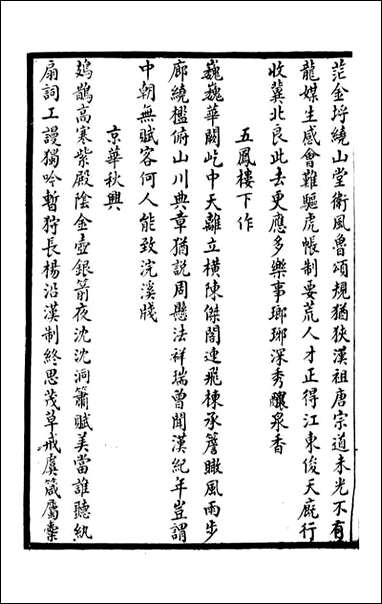 茫金埒繞山堂衛風魯頌規猶狹漢祖唐宗道未光不有
龍媒生感會難驅虎帳制要荒人才正得江東俊天廐行
收冀北良此去更應多樂事瑯琊深秀釀泉香
五鳳樓下作
巍巍華闕屹中天離立橫陳傑閣連飛棟承簷瞰風雨步
廊繞檻俯山川典章猶說周懸法祥瑞曾聞漢紀年豈謂
中朝無賦客何人能致浣溪牋
京華秋興
鳷鵲高寒紫殿陰金壺銀箭夜沈沈洞簫賦美當誰聽紈
扇詞工謾獨吟暫狩長楊沿漢制終思茂草戒虞箴屬橐